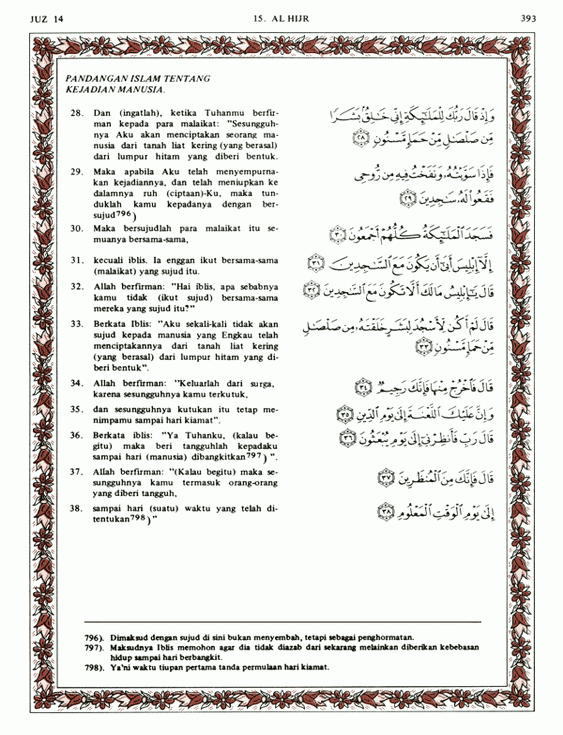 JUZ 14
15. AL HIJR
393
PANDANGAN ISLAM TENTANG
KEJADIAN MANUSIA.
28. Dan (ingatlah), ketika Tuhanmu berfir-
man kepada para malaikat: "Sesungguh-
nya Aku akan menciptakan seorang ma-
nusia dari tanah liat kering (yang berasal)
dari lumpur hitam yang diberi bentuk.
29. Maka apabila Aku telah menyempurna-
kan kejadiannya, dan telah meniupkan ke
dalamnya ruh (ciptaan)-Ku, maka tun-
duklah kamu kepadanya dengan ber-
sujud796)
30. Maka bersujudlah para malaikat itu se-
muanya bersama-sama,
31. kecuali iblis. Ia enggan ikut bersama-sama
(malaikat) yang sujud itu.
32. Allah berfirman: "Hai iblis, apa sebabnya
kamu tidak (ikut sujud) bersama-sama
mereka yang sujud itu?"
33. Berkata Iblis: "Aku sekali-kali tidak akan
sujud kepada manusia yang Engkau telah
menciptakannya dari tanah liat kering
(yang berasal) dari lumpur hitam yang di-
beri bentuk".
34. Allah berfirman: "Keluarlah dari surga,
karena sesungguhnya kamu terkutuk,
35. dan sesungguhnya kutukan itu tetap me-
nimpamu sampai hari kiamat".
36. Berkata iblis: "Ya Tuhanku, (kalau be-
gitu) maka beri tangguhlah kepadaku
sampai hari (manusia) dibangkitkan797) ".
37. Allah berfirman: "(Kalau begitu) maka se-
sungguhnya kamu termasuk orang-orang
yang diberi tangguh,
38. sampai hari (suatu) waktu yang telah di-
tentukan798)"
وَإِذْ قَالَ رَبُّكَ لِلْمَلَٰٓئِكَةِ إِنِّي خَٰلِقٌۢ بَشَرًا
مِّن صَلْصَٰلٍ مِّنْ حَمَإٍ مَّسْنُونٍ ﴿٢٨﴾
فَإِذَا سَوَّيْتُهُۥ وَنَفَخْتُ فِيهِ مِن رُّوحِي
فَقَعُوا۟ لَهُۥ سَٰجِدِينَ ﴿٢٩﴾
فَسَجَدَ الْمَلَٰٓئِكَةُ كُلُّهُمْ أَجْمَعُونَ ﴿٣٠﴾
إِلَّآ إِبْلِيسَ أَبَىٰٓ أَن يَكُونَ مَعَ السَّٰجِدِينَ ﴿٣١﴾
قَالَ يَٰٓإِبْلِيسُ مَا لَكَ أَلَّا تَكُونَ مَعَ السَّٰجِدِينَ ﴿٣٢﴾
قَالَ لَمْ أَكُن لِّأَسْجُدَ لِبَشَرٍ خَلَقْتَهُۥ مِن صَلْصَٰلٍ
مِّنْ حَمَإٍ مَّسْنُونٍ ﴿٣٣﴾
قَالَ فَاخْرُجْ مِنْهَا فَإِنَّكَ رَجِيمٌ ﴿٣٤﴾
وَإِنَّ عَلَيْكَ اللَّعْنَةَ إِلَىٰ يَوْمِ الدِّينِ ﴿٣٥﴾
قَالَ رَبِّ فَأَنظِرْنِيٓ إِلَىٰ يَوْمِ يُبْعَثُونَ ﴿٣٦﴾
قَالَ فَإِنَّكَ مِنَ الْمُنظَرِينَ ﴿٣٧﴾
إِلَىٰ يَوْمِ الْوَقْتِ الْمَعْلُومِ ﴿٣٨﴾
796). Dimaksud dengan sujud di sini bukan menyembah, tetapi sebagai penghormatan.
797). Maksudnya Iblis memohon agar dia tidak diazab dari sekarang melainkan diberikan kebebasan
hidup sampai hari berbangkit.
798). Ya'ni waktu tiupan pertama tanda permulaan hari kiamat.